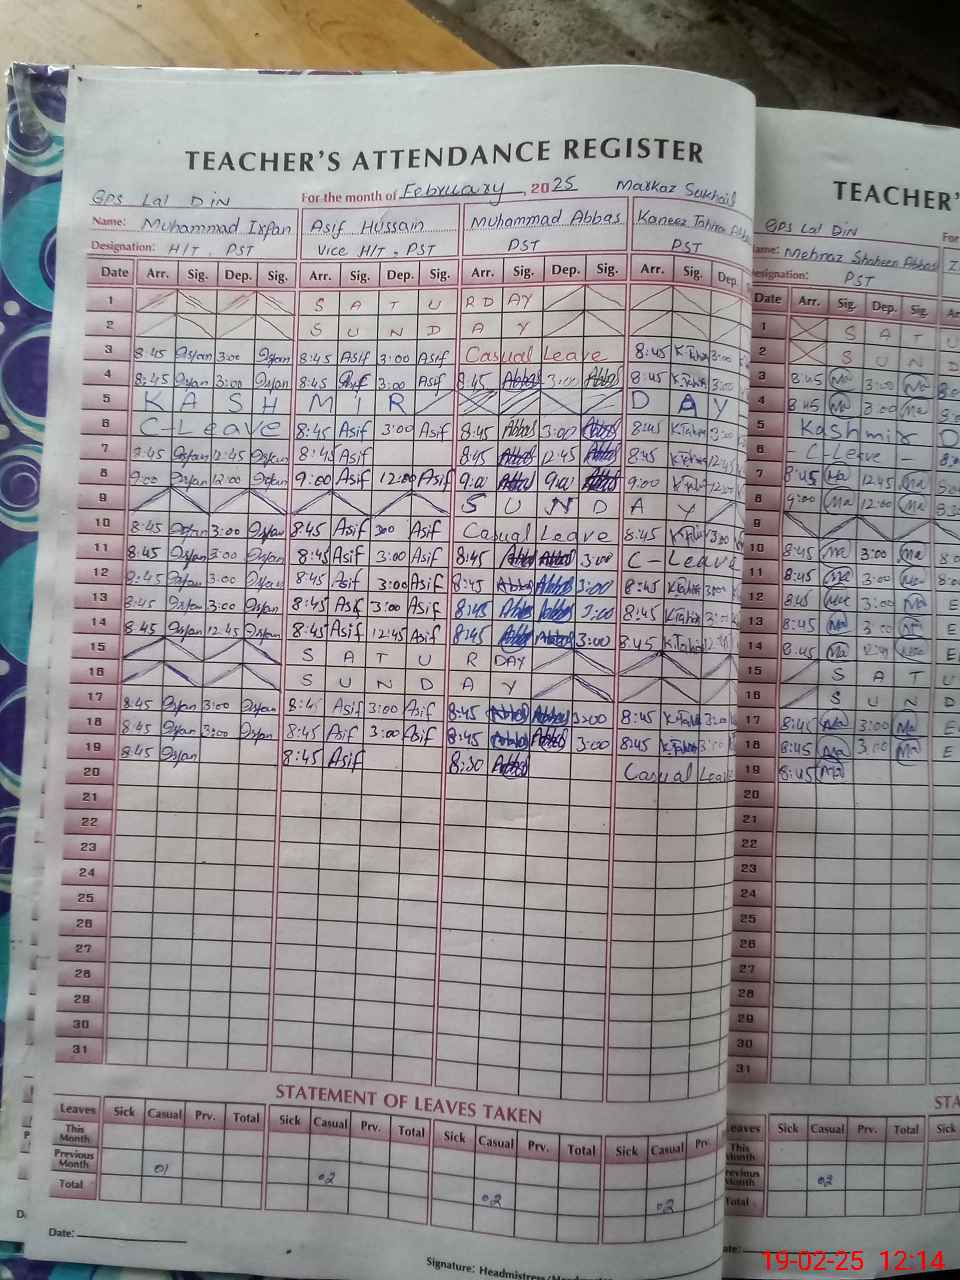 TEACHER'S ATTENDANCE REGISTER
GPS Lal Din For the month of February, 2025 Markaz
Name: Muhammad Irfan Asif Hussain Muhammad Abbas Kaneez
Designation: H/T, PST Vice H/T, PST PST PST
Date Arr. Sig. Dep. Sig. Arr. Sig. Dep. Sig. Arr. Sig. Dep. Sig. Arr. Sig. Dep.
1 S A T U R D A Y
2 S U N D A Y
3 8:45 Irfan 3:00 Irfan 8:45 Asif 3:00 Asif Casual Leave 8:45 3:00
4 8:45 Irfan 3:00 Irfan 8:45 Asif 3:00 Asif 8:45 Abbas 3:00 Abbas 8:45
5 K A S H M I R D A Y
6 C-Leave 8:45 Asif 3:00 Asif 8:45 Abbas 3:00 Abbas 8:45 3:00
7 8:45 Irfan 12:45 Irfan 8:45 Asif 8:45 Abbas 12:45 Abbas 8:45 12:45
8 9:00 Irfan 12:00 Irfan 9:00 Asif 12:00 Asif 9:00 Abbas Abbas 9:00
9 S U N D A Y
10 8:45 Irfan 3:00 Irfan 8:45 Asif 300 Asif Casual Leave 8:45 3:00
11 8:45 Irfan 3:00 Irfan 8:45 Asif 3:00 Asif 8:45 Abbas Abbas 3:00 C-Leave
12 8:45 Irfan 3:00 Irfan 8:45 Asif 3:00 Asif 8:45 Abbas Abbas 3:00 8:45
13 8:45 Irfan 3:00 Irfan 8:45 Asif 3:00 Asif 8:45 Abbas Abbas 3:00 8:45
14 8:45 Irfan 12:45 Irfan 8:45 Asif 12:45 Asif 8:45 Abbas Abbas 3:00 8:45
15 S A T U R DAY
16 S U N D A Y
17 8:45 Irfan 3:00 Irfan 8:45 Asif 3:00 Asif 8:45 Abbas Abbas 3:00 8:45
18 8:45 Irfan 3:00 Irfan 8:45 Asif 3:00 Asif 8:45 Abbas Abbas 3:00 8:45
19 8:45 Irfan 8:45 Asif 8:30 Abbas Casual Leave
20
21
22
23
24
25
26
27
28
29
30
31
STATEMENT OF LEAVES TAKEN
Leaves Sick Casual Prv. Total Sick Casual Prv. Total Sick Casual Prv. Total Sick Casual Prv.
This Month
Previous Month 01 02 02 02
Total
Date:
Signature:
TEACHER'
GPS Lal Din
Name: Mehnaz Shaheen Abbasi
Designation: PST
Date Arr. Sig. Dep. Sig.
1 S A T U
2 S U N D
3 8:45 Ma 3:00 Ma
4 8:45 Ma 3:00 Ma
5 Kashmir D
6 - C-Leave -
7 8:45 Ma 12:45 Ma
8 9:00 Ma 12:00 Ma
9
10 8:45 Ma 3:00 Ma
11 8:45 Ma 3:00 Ma
12 8:45 Ma 3:00 Ma
13 8:45 Ma 3:00 Ma
14 8:45 Ma Ma
15 S A T U
16 S U N D
17 8:45 Ma 3:00 Ma
18 8:45 Ma 3:00 Ma
19 8:45 Ma
20
21
22
23
24
25
26
27
28
29
30
31
STA
Leaves Sick Casual Prv. Total Sick
This Month
Previous Month 02
Total
19-02-25 12:14